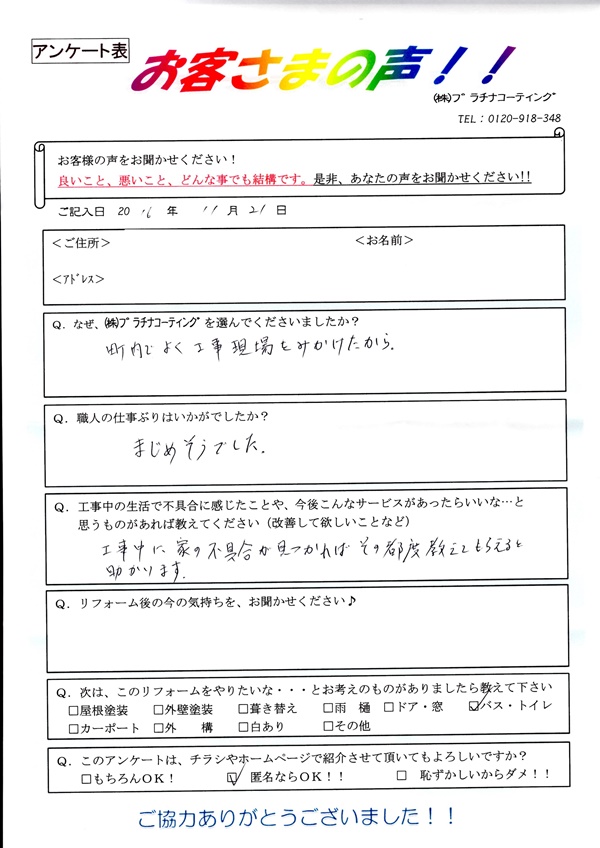 アンケート表
お客さまの声！！
㈱プラチナコーティング
TEL：0120-918-348
お客様の声をお聞かせください！
良いこと、悪いこと、どんな事でも結構です。是非、あなたの声をお聞かせください!!
ご記入日 2016年 11月21日
＜ご住所＞ ＜お名前＞
＜アドレス＞
Q．なぜ、㈱プラチナコーティングを選んでくださいましたか？
町内でよく工事現場をみかけたから。
Q．職人の仕事ぶりはいかがでしたか？
まじめそうでした。
Q．工事中の生活で不具合に感じたことや、今後こんなサービスがあったらいいな…と
思うものがあれば教えてください（改善して欲しいことなど）
工事中に家の不具合が見つかればその都度教えてもらえると
助かります。
Q．リフォーム後の今の気持ちを、お聞かせください♪
Q．次は、このリフォームをやりたいな・・・とお考えのものがありましたら教えて下さい
□屋根塗装 □外壁塗装 □葺き替え □雨 樋 □ドア・窓 ☑バス・トイレ
□カーポート □外 構 □白あり □その他
Q．このアンケートは、チラシやホームページで紹介させて頂いてもよろしいですか？
□もちろんOK！ ☑ 匿名ならOK！！ □ 恥ずかしいからダメ！！
ご協力ありがとうございました！！